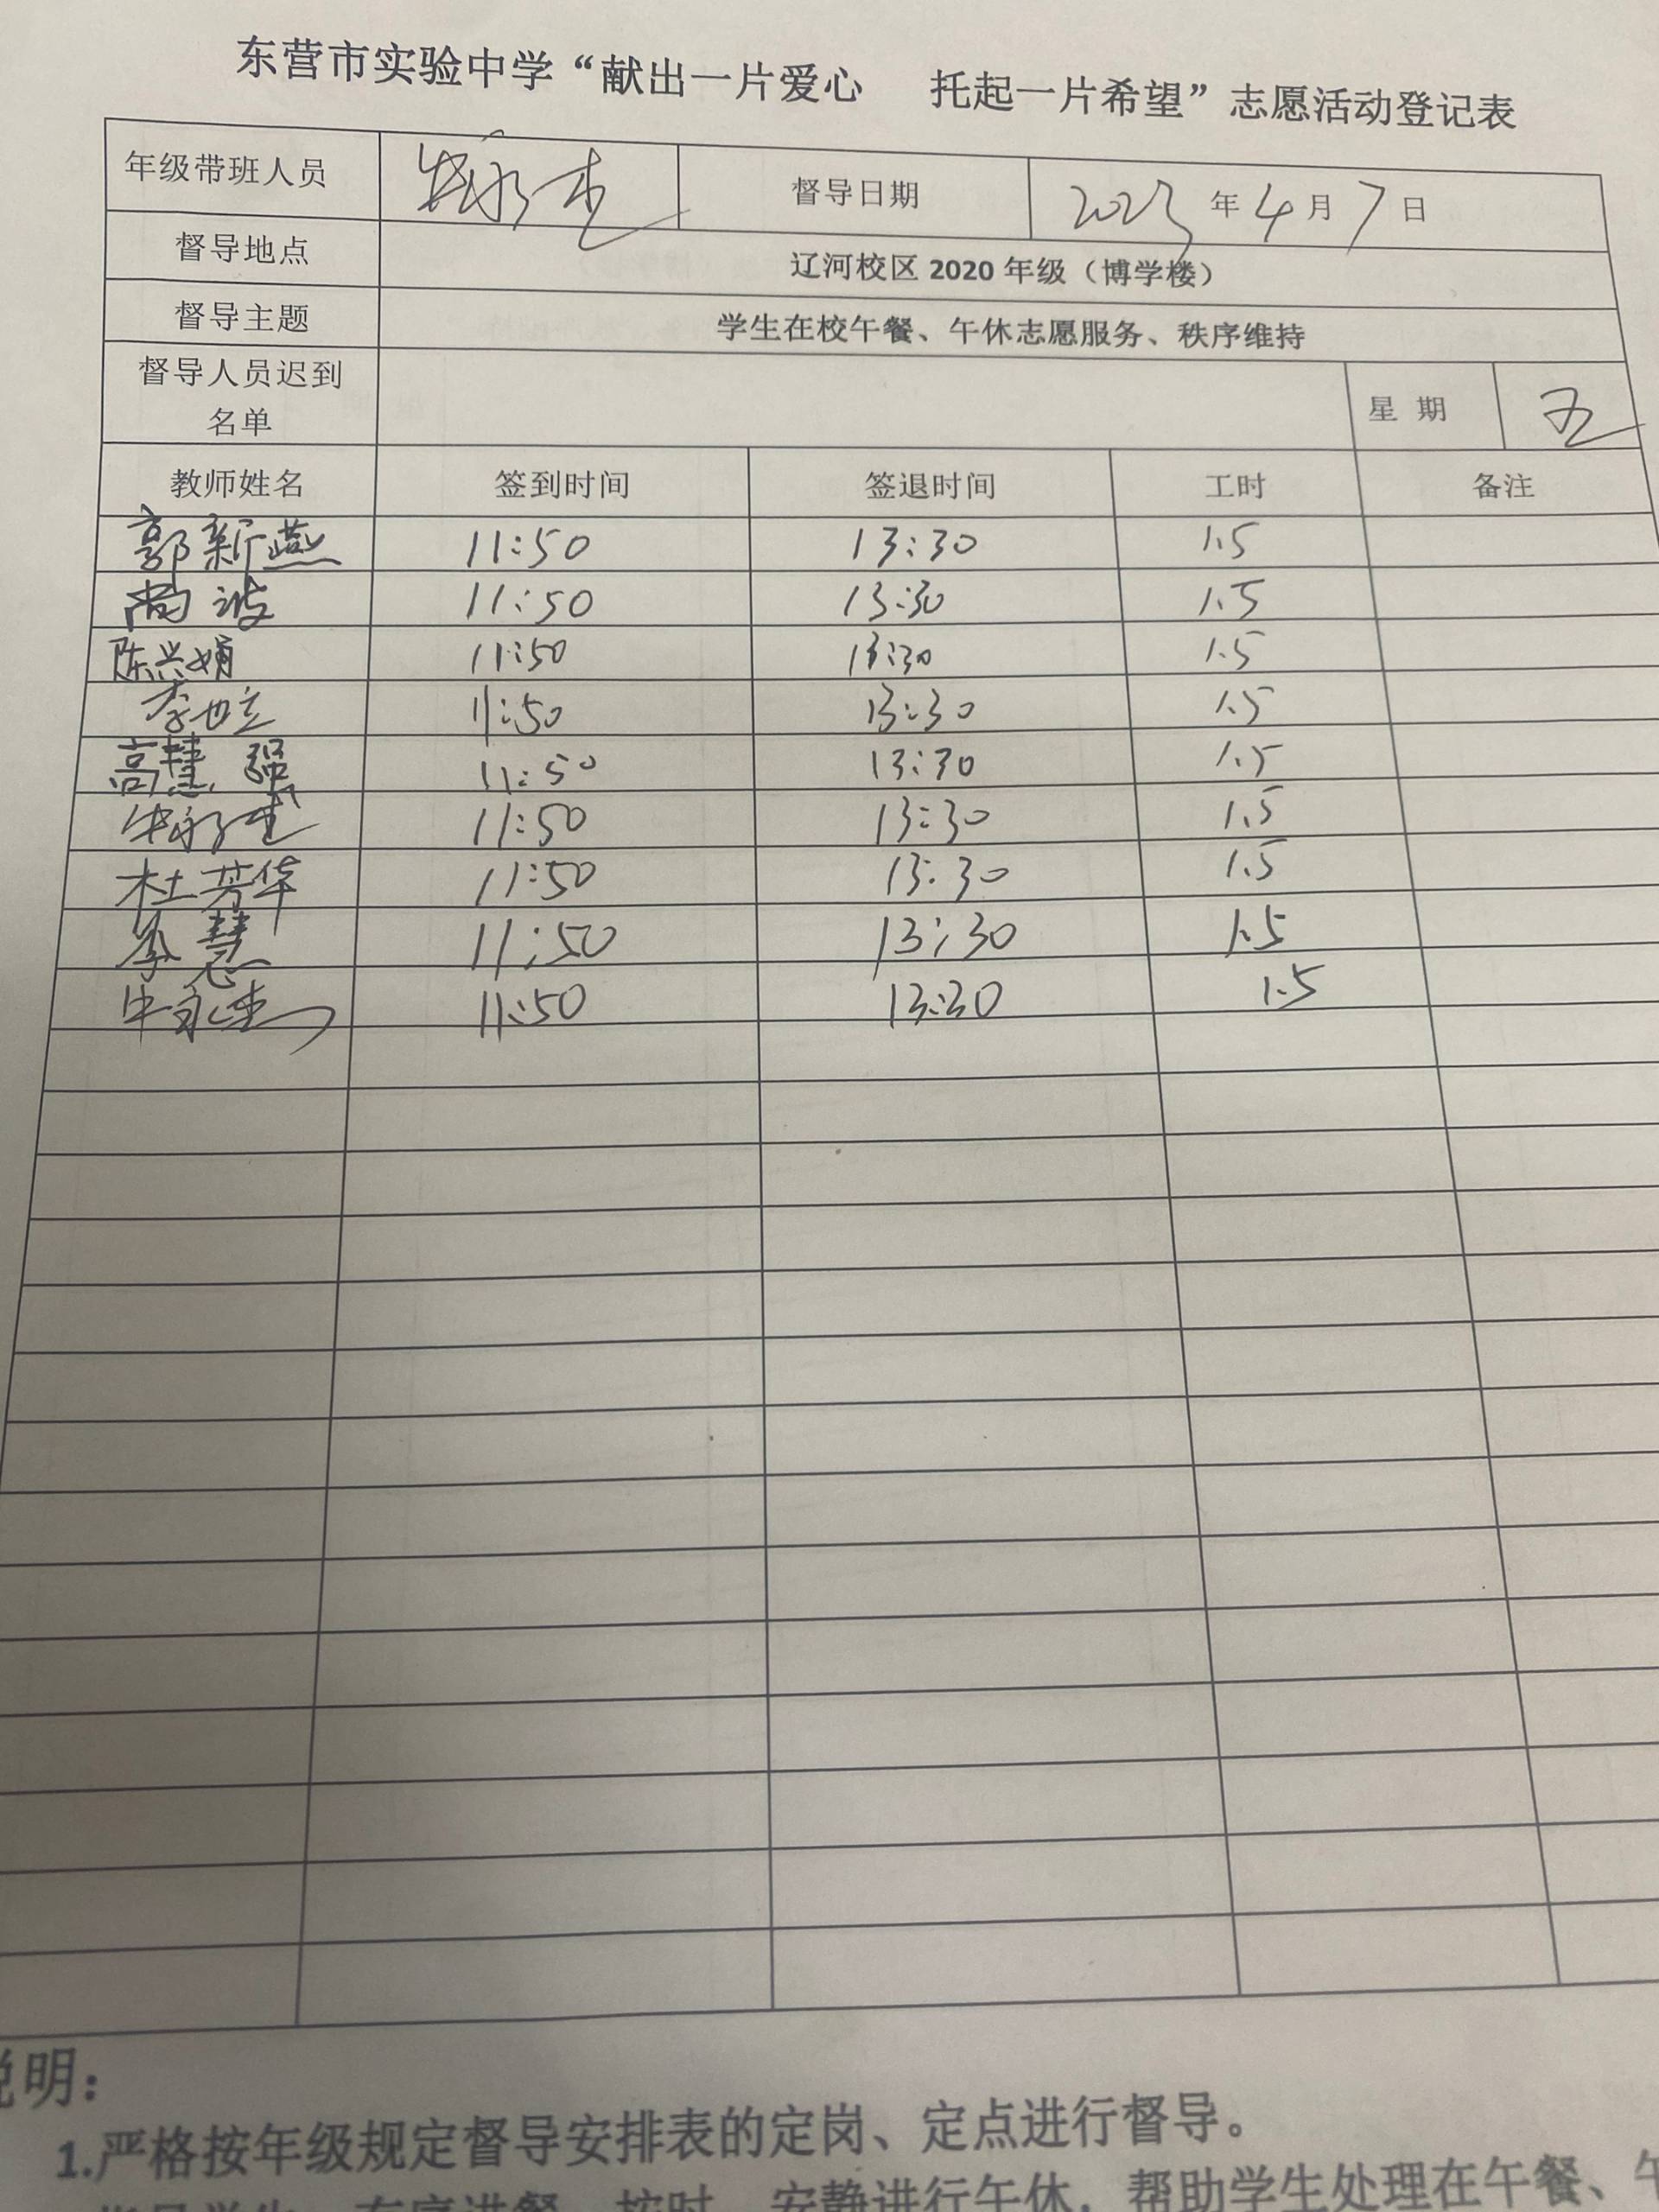 东营市实验中学“献出一片爱心 托起一片希望”志愿活动登记表
年级带班人员 督导日期 2023年4月7日
督导地点 辽河校区 2020 年级（博学楼）
督导主题 学生在校午餐、午休志愿服务、秩序维持
督导人员迟到名单 星 期 五
教师姓名 签到时间 签退时间 工时 备注
郭新燕 11:50 13:30 1.5
尚波 11:50 13:30 1.5
陈兴娟 11:50 13:30 1.5
李世立 11:50 13:30 1.5
高慧强 11:50 13:30 1.5
11:50 13:30 1.5
杜芳华 11:50 13:30 1.5
李慧 11:50 13:30 1.5
11:50 13:30 1.5
说明：
1.严格按年级规定督导安排表的定岗、定点进行督导。
按时、安静进行午休，帮助学生处理在午餐、午